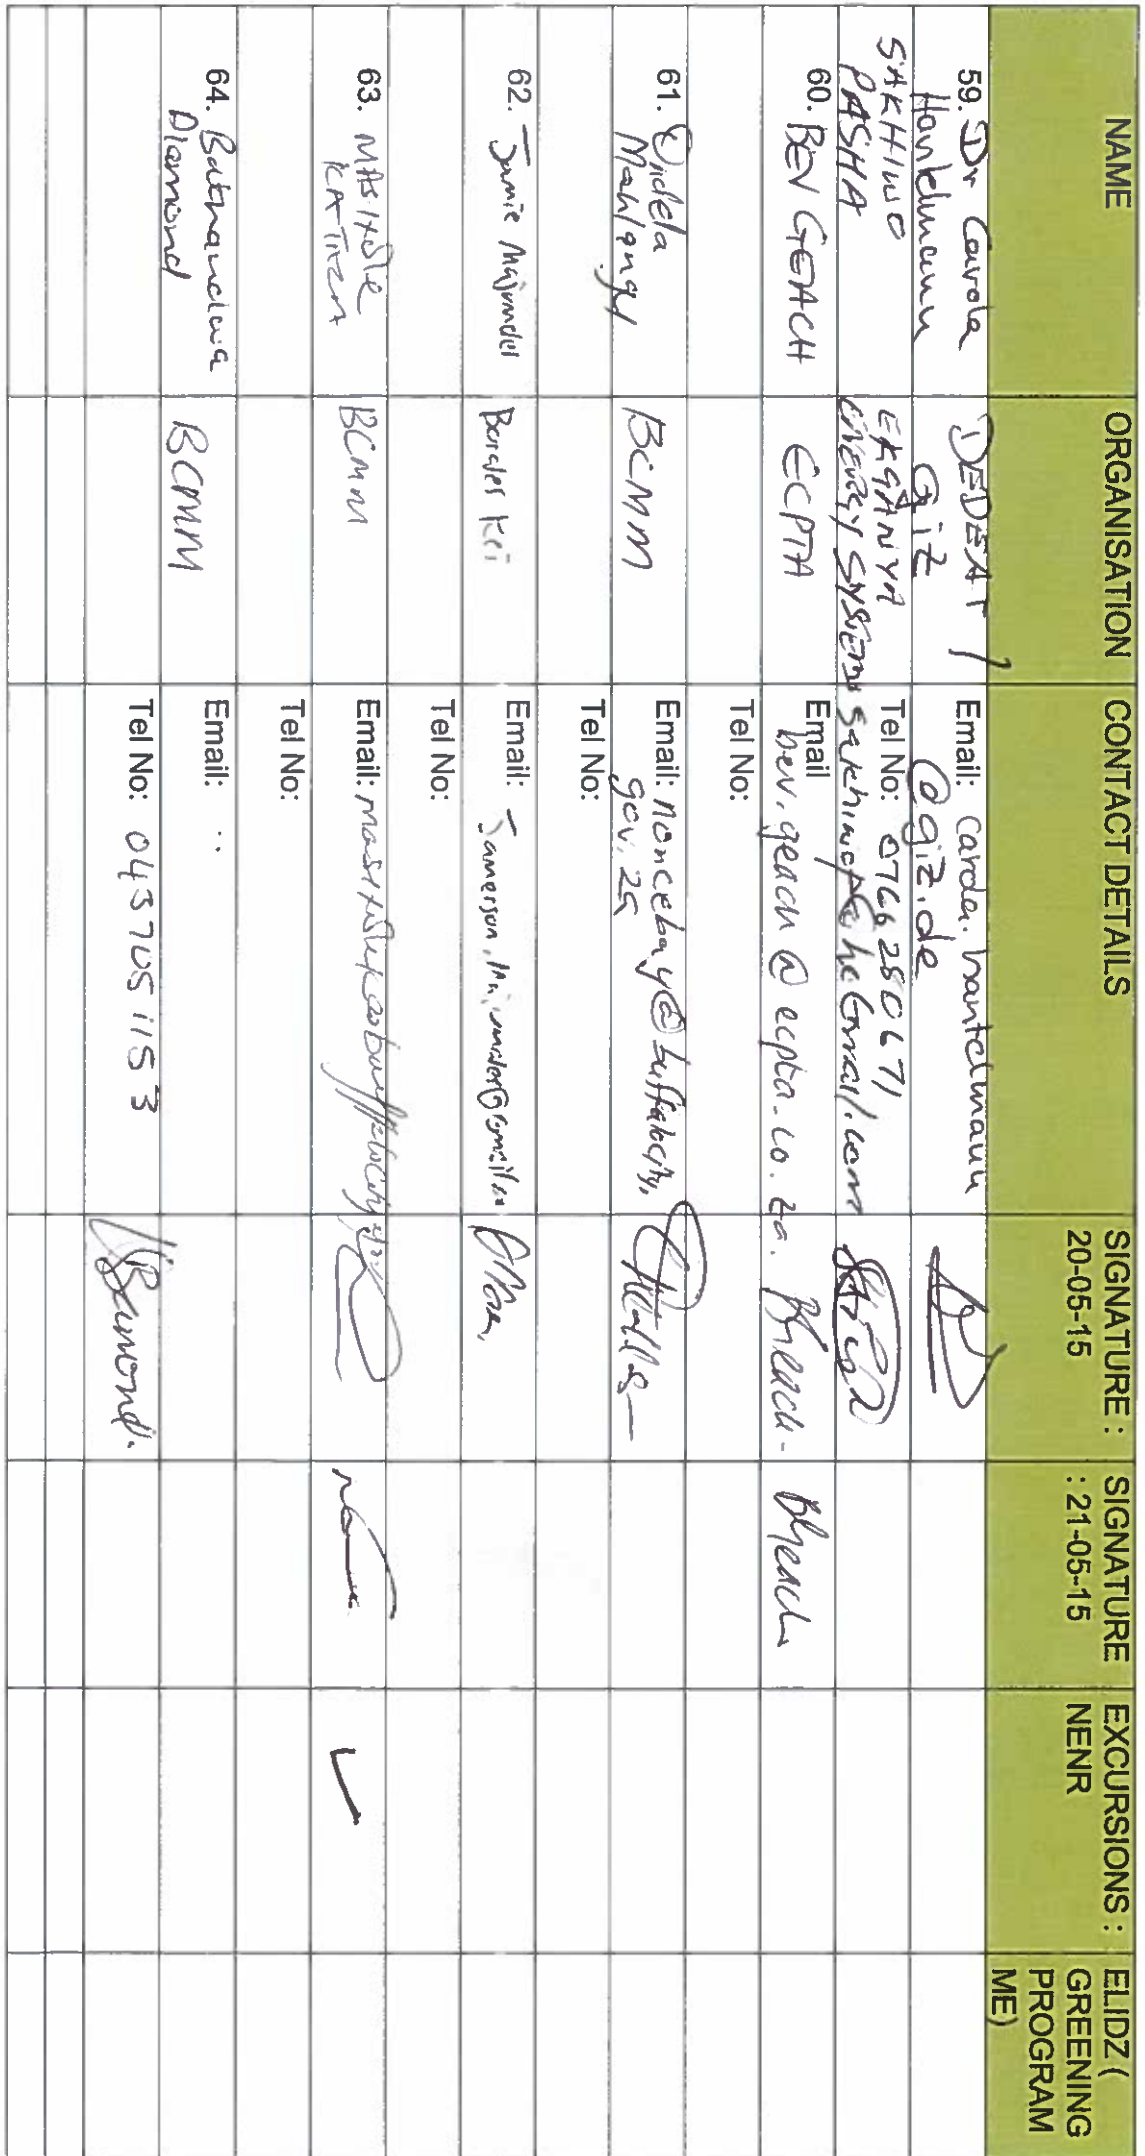 NAME
ORGANISATION
CONTACT DETAILS
SIGNATURE :
20-05-15
SIGNATURE
: 21-05-15
EXCURSIONS :
NENR
ELIDZ (
GREENING
PROGRAM
ME)
59. Dr Carola
Hantelmann
DEDEAT /
GIZ
Email: carola.hantelmann
@giz.de
SAKHIWO
PASHA
EKSANYA
ENERGY SYSTEMS
Tel No: 0766280671
60. BEV GEACH
ECPTA
Email
bev.geach@ecpta.co.za.
BGeach
BGeach
Tel No:
61.
Mahlangu
BCMM
Email:ioncebay@buffalocity.
gov.za
Tel No:
62. Jamie Majumder
Border Kei
Email:
Tel No:
63. MASIXOLE
BCMM
Email:
Tel No:
64. Buthandwa
Diamond
BCMM
Email: ..
Tel No: 0437051153
Diamond.